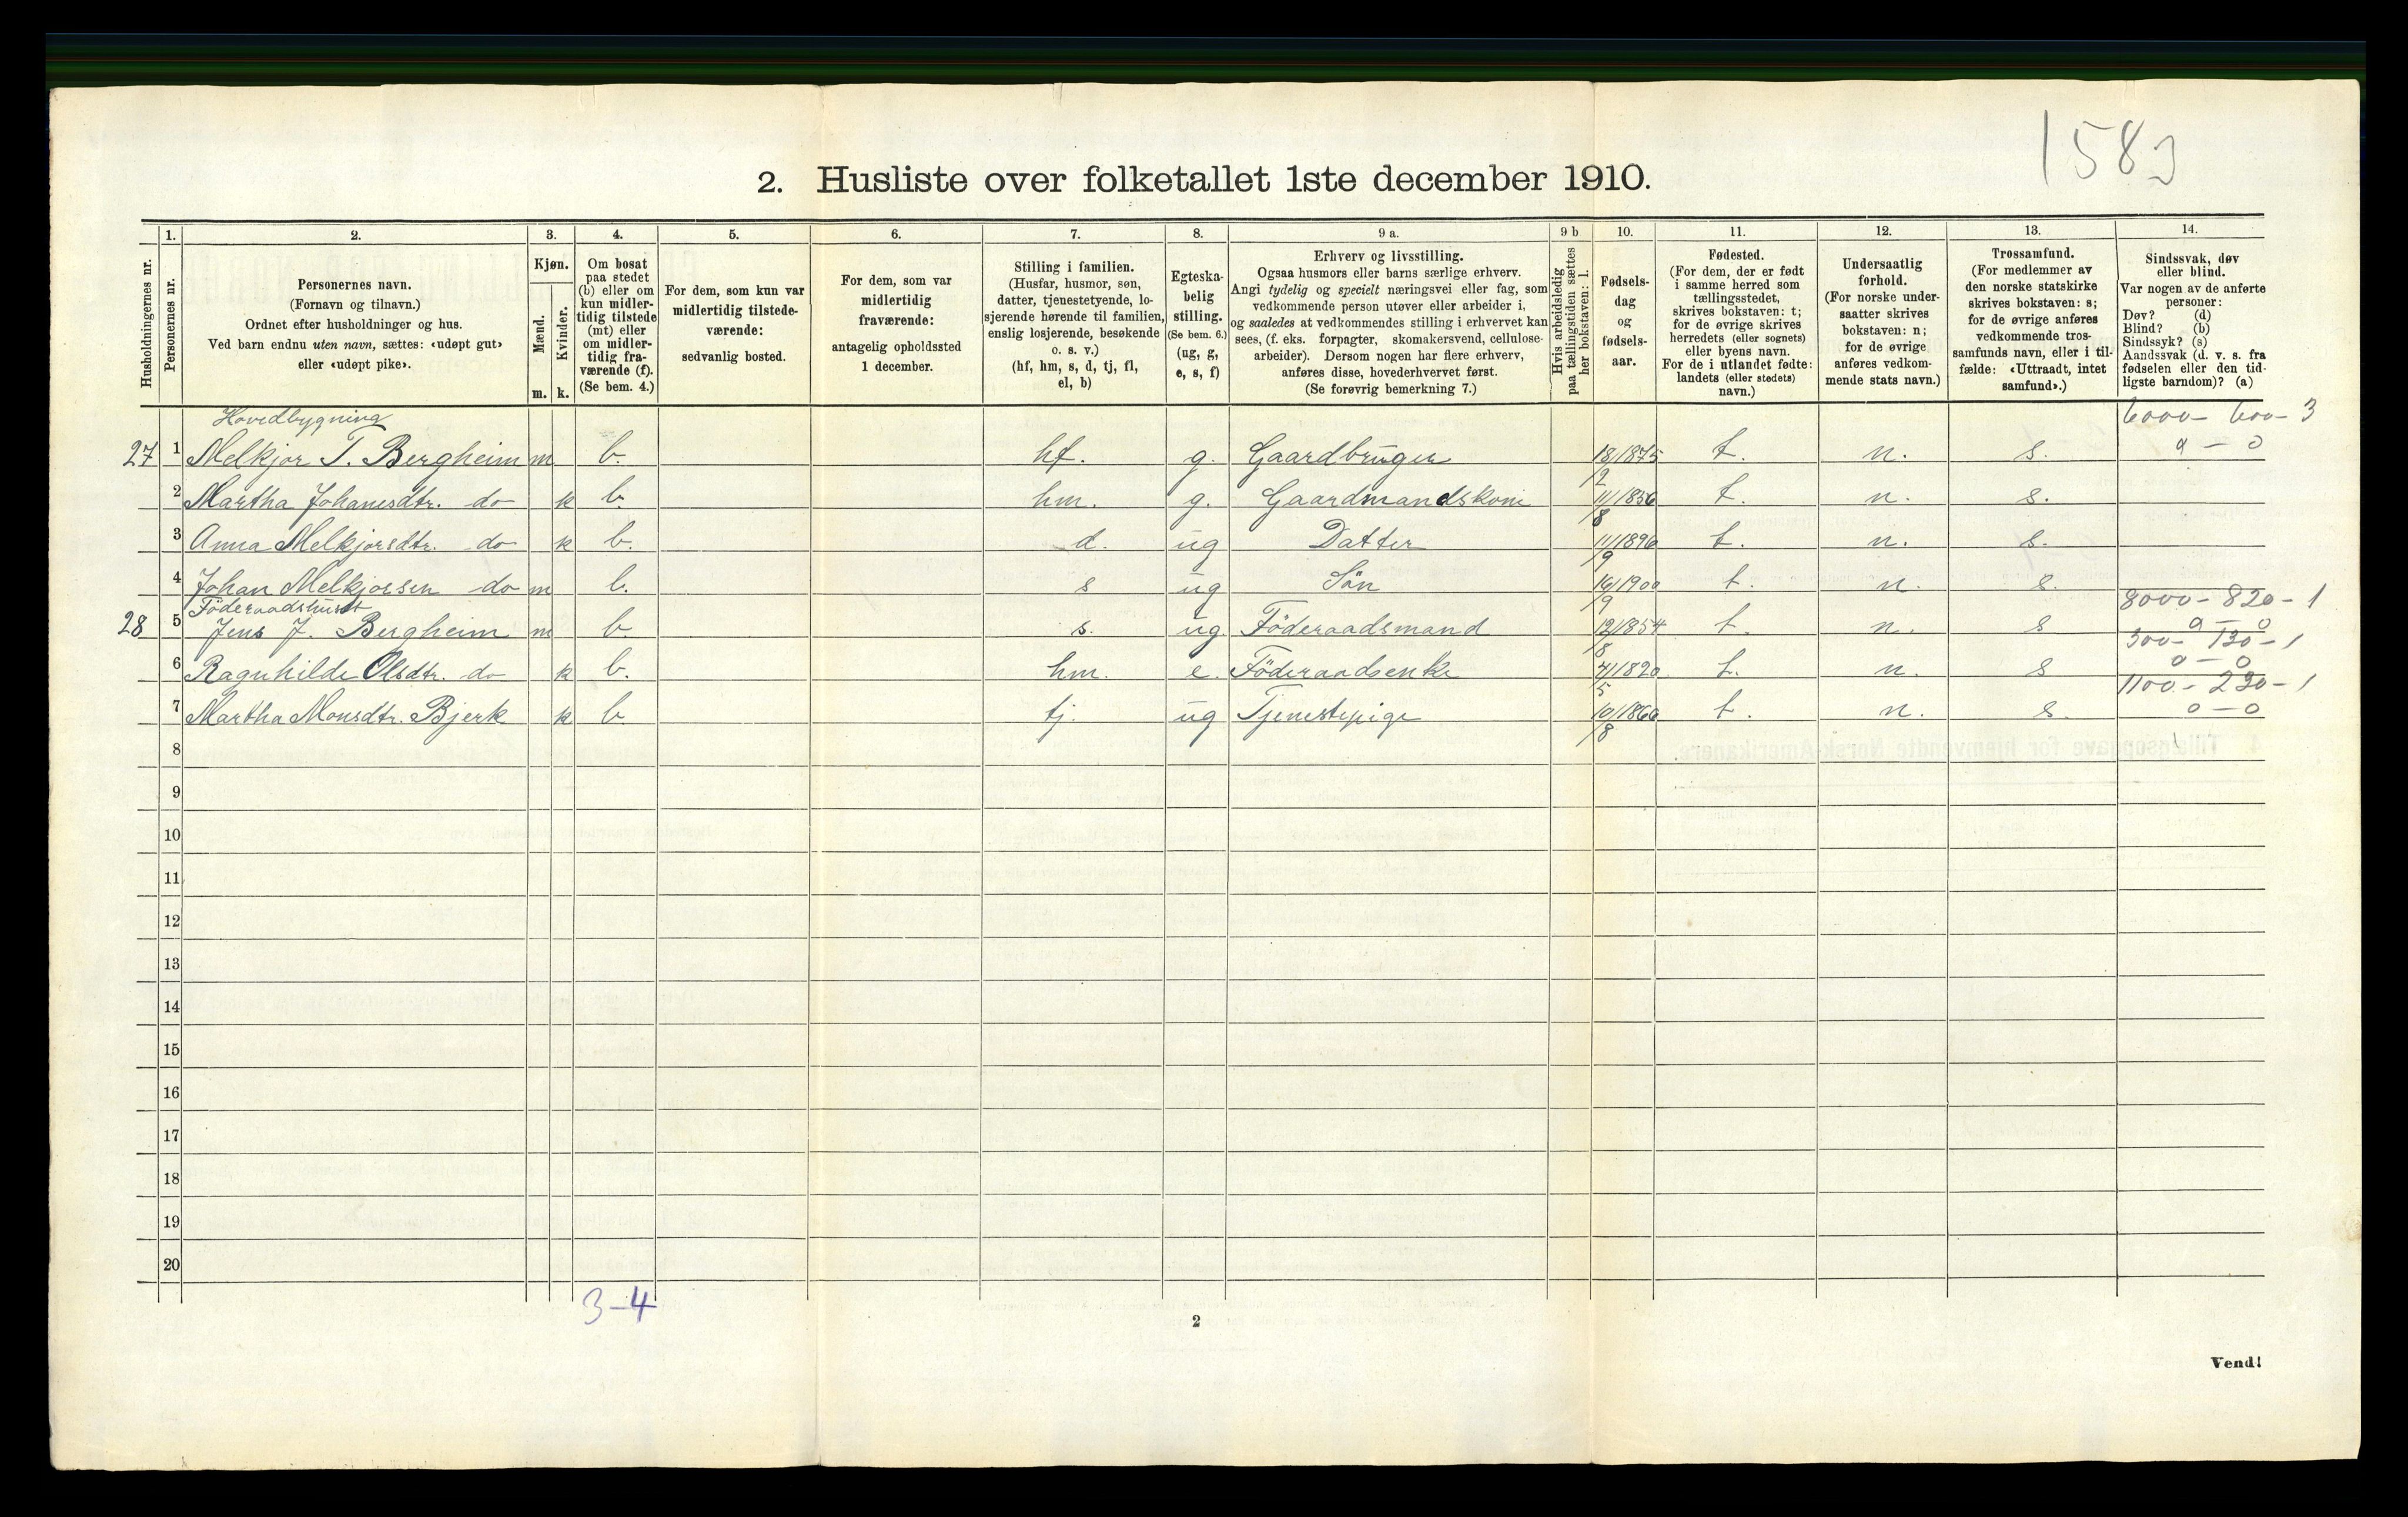 1583
2. Husliste over folketallet 1ste december 1910.
Husholdningernes nr.
1.
Personernes nr.
2.
Personernes navn.
(Fornavn og tilnavn.)
Ordnet efter husholdninger og hus.
Ved barn endnu uten navn, sættes: «udøpt gut»
eller «udøpt pike».
3.
Kjøn.
Mænd.
Kvinder.
m. k.
4.
Om bosat
paa stedet
(b) eller om
kun midler-
tidig tilstede
(mt) eller
om midler-
tidig fra-
værende (f).
(Se bem. 4.)
5.
For dem, som kun var
midlertidig tilstede-
værende:
sedvanlig bosted.
6.
For dem, som var
midlertidig
fraværende:
antagelig opholdssted
1 december.
7.
Stilling i familien.
(Husfar, husmor, søn,
datter, tjenestetyende, lo-
sjerende hørende til familien,
enslig losjerende, besøkende
o. s. v.)
(hf, hm, s, d, tj, fl,
el, b)
8.
Egteska-
belig
stilling.
(Se bem. 6.)
(ug, g,
e, s, f)
9 a.
Erhverv og livsstilling.
Ogsaa husmors eller barns særlige erhverv.
Angi tydelig og specielt næringsvei eller fag, som
vedkommende person utøver eller arbeider i,
og saaledes at vedkommendes stilling i erhvervet kan
sees, (f. eks. forpagter, skomakersvend, cellulose-
arbeider). Dersom nogen har flere erhverv,
anføres disse, hovederhvervet først.
(Se forøvrig bemerkning 7.)
9 b
Hvis arbeidsledig
paa tællingstiden sættes
her bokstaven: l.
10.
Fødsels-
dag
og
fødsels-
aar.
11.
Fødested.
(For dem, der er født
i samme herred som
tællingsstedet,
skrives bokstaven: t;
for de øvrige skrives
herredets (eller sognets)
eller byens navn.
For de i utlandet fødte:
landets (eller stedets)
navn.)
12.
Undersaatlig
forhold.
(For norske under-
saatter skrives
bokstaven: n;
for de øvrige
anføres vedkom-
mende stats navn.)
13.
Trossamfund.
(For medlemmer av
den norske statskirke
skrives bokstaven: s;
for de øvrige anføres
vedkommende tros-
samfunds navn, eller i til-
fælde: «Uttraadt, intet
samfund».)
14.
Sindssvak, døv
eller blind.
Var nogen av de anførte
personer:
Døv? (d)
Blind? (b)
Sindssyk? (s)
Aandssvak (d. v. s. fra
fødselen eller den tid-
ligste barndom)? (a)
Hovedbygning 6000 - 600 - 3
27 1 Melkjor T. Bergheim m b. hf. g. Gaardbruger 18/2 1875 t. n. s. 0 - 0
2 Martha Johanesdtr. do k b. hm. g. Gaardmandskone 11/8 1856 t. n. s.
3 Anna Melkjorsdtr. do k b. d. ug Datter 11/9 1896 t. n. s.
4 Johan Melkjorsen do m b. s ug Sön 16/9 1900 t. n. s.
Föderaadshuset 8000 - 820 - 1
28 5 Jens J. Bergheim m b. s. ug. Föderaadsmand 12/8 1854 t. n. s 0 - 0
300 - 130 - 1
6 Ragnhilde Olsdtr. do k b. hm. e. Föderaadsenke 4/5 1820 t. n. s 0 - 0
1100 - 230 - 1
7 Martha Monsdtr. Bjerk k b tj. ug Tjenestepige 10/8 1860 t. n. s. 0 - 0
8
9
10
11
12
13
14
15
16
17
18
19
20
3-4
2
Vend!